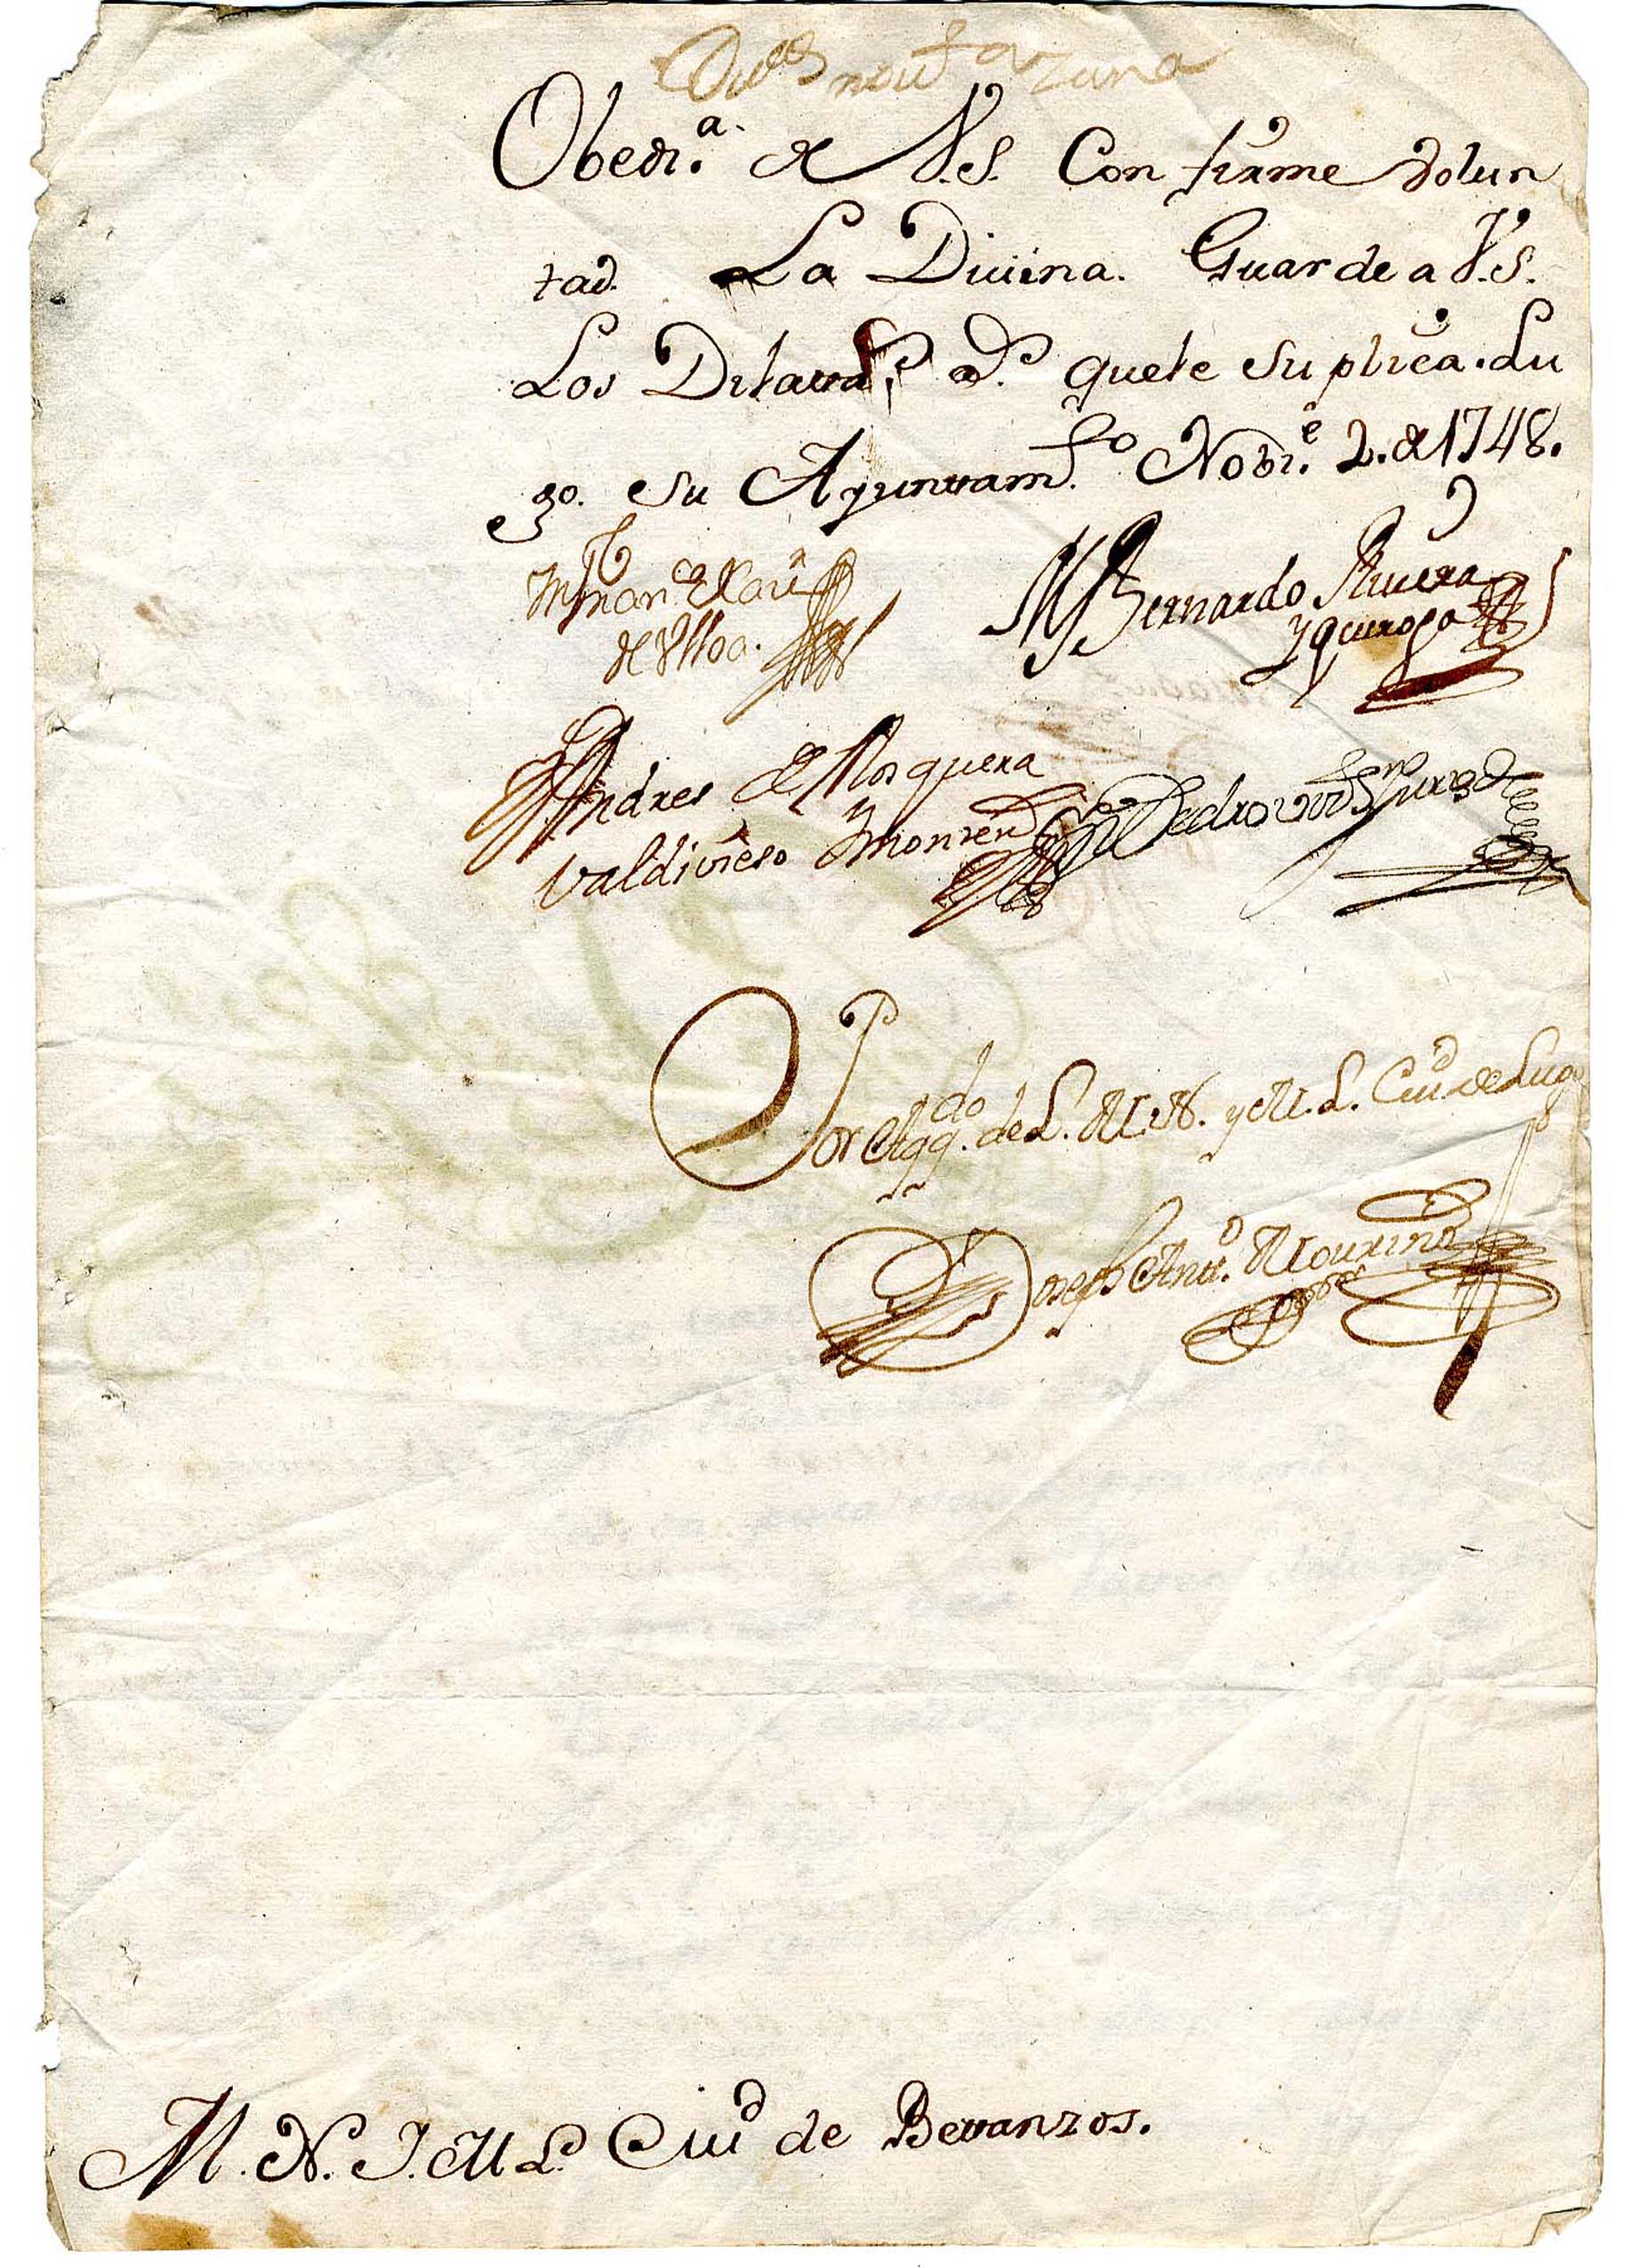 Obedi.ª de V.S. Con firme volun
tad. La Divina. Guarde a V.S.
Los Dilatad.s a.s que le Suplica. Lu
go. Su Ayuntam.to Nobr.e 2. de 1748.
Xavi
de Ulloa.
Bernardo Rivera
y quiroga
Andres de Mosquera
Valdivieso y
Pedro
Por Aqq.do de L. M.N. y M.L. Ciu.d de Lugo
Joseph Antt.o Mourino
M. N. J. M L. Ciud de Bettanzos.